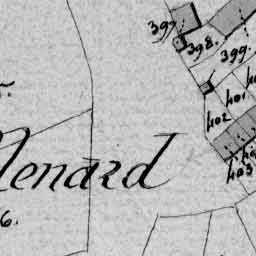 397
398.
399.
401
402
Menard
403
6.